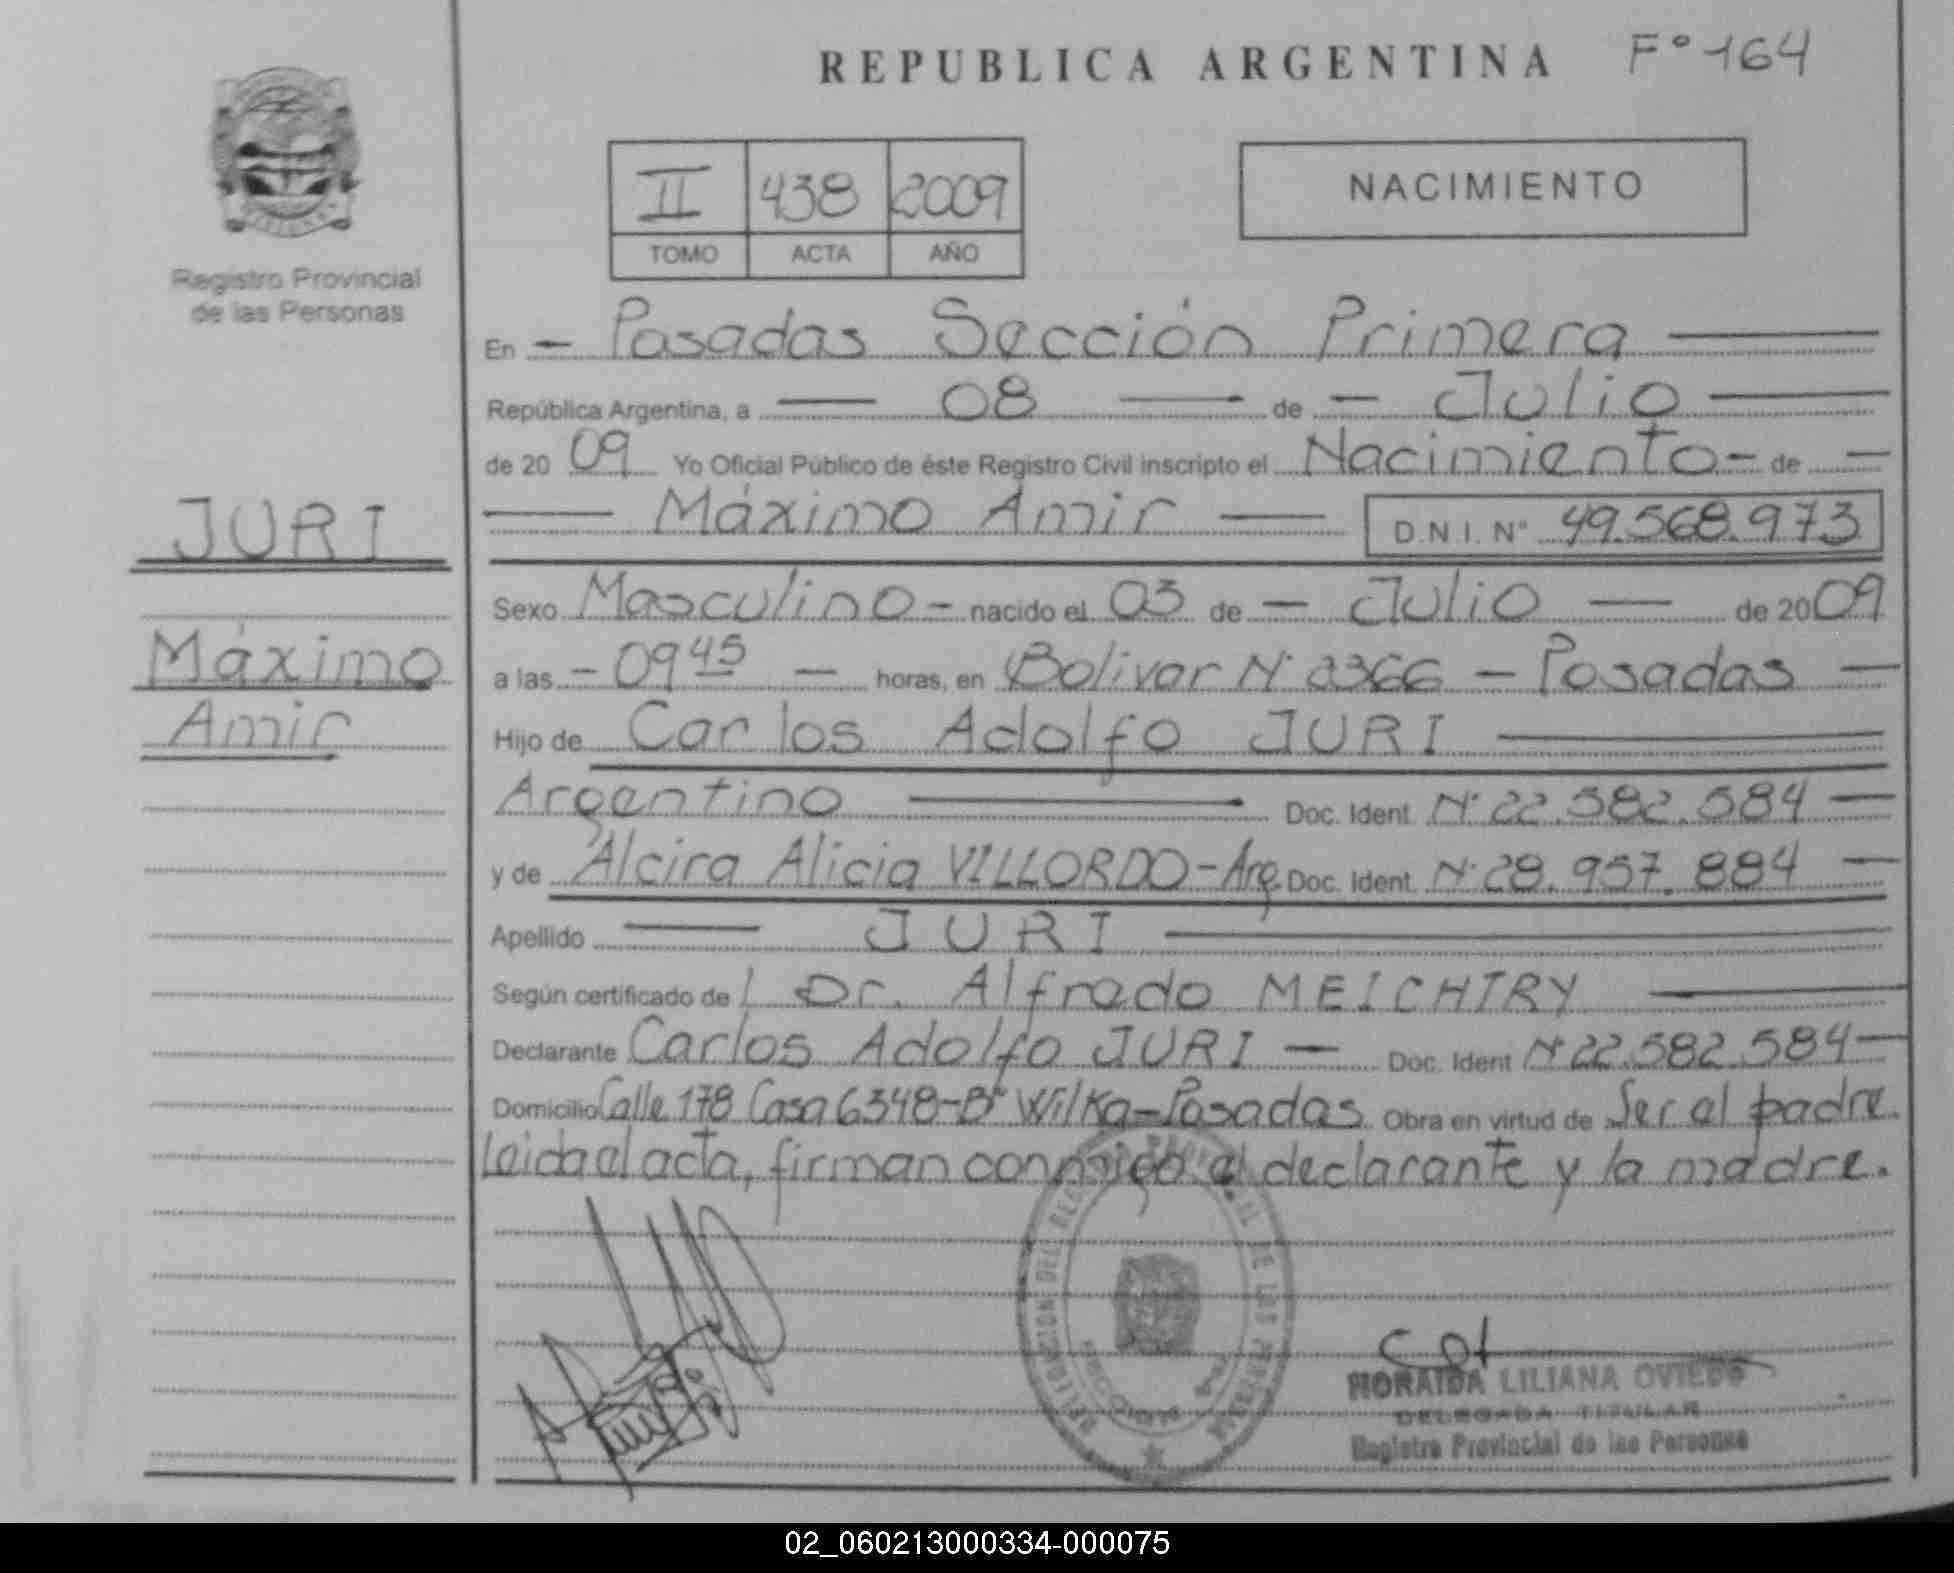 REPUBLICA ARGENTINA Fº 164
II 438 2009
TOMO ACTA AÑO
NACIMIENTO
Registro Provincial
de las Personas
JURI
Máximo
Amir
En - Posadas Sección Primera
República Argentina, a 08 de - Julio
de 20 09 Yo Oficial Público de éste Registro Civil inscripto el Nacimiento - de -
Máximo Amir D.N.I. Nº 49.568.973
Sexo Masculino - nacido el 03 de - Julio - de 2009
a las - 09 45 - horas, en Bolivar Nº 2366 - Posadas -
Hijo de Carlos Adolfo JURI
Argentino Doc. Ident. Nº 22.582.584 -
y de Alcira Alicia VILLORDO - Arg. Doc. Ident. Nº 28.957.884 -
Apellido JURI
Según certificado de Dr. Alfredo MEICHTRY
Declarante Carlos Adolfo JURI - Doc. Ident Nº 22.582.584 -
Domicilio Calle 178 Casa 6348 - Bº Wilka - Posadas Obra en virtud de Ser el padre.
Leida el acta, firman conmigo el declarante y la madre.
DELEGACION DEL REGISTRO PROVINCIAL DE LAS PERSONAS
NORAIDA LILIANA OVIEDO
DELEGADA TITULAR
Registro Provincial de las Personas
02_060213000334-000075